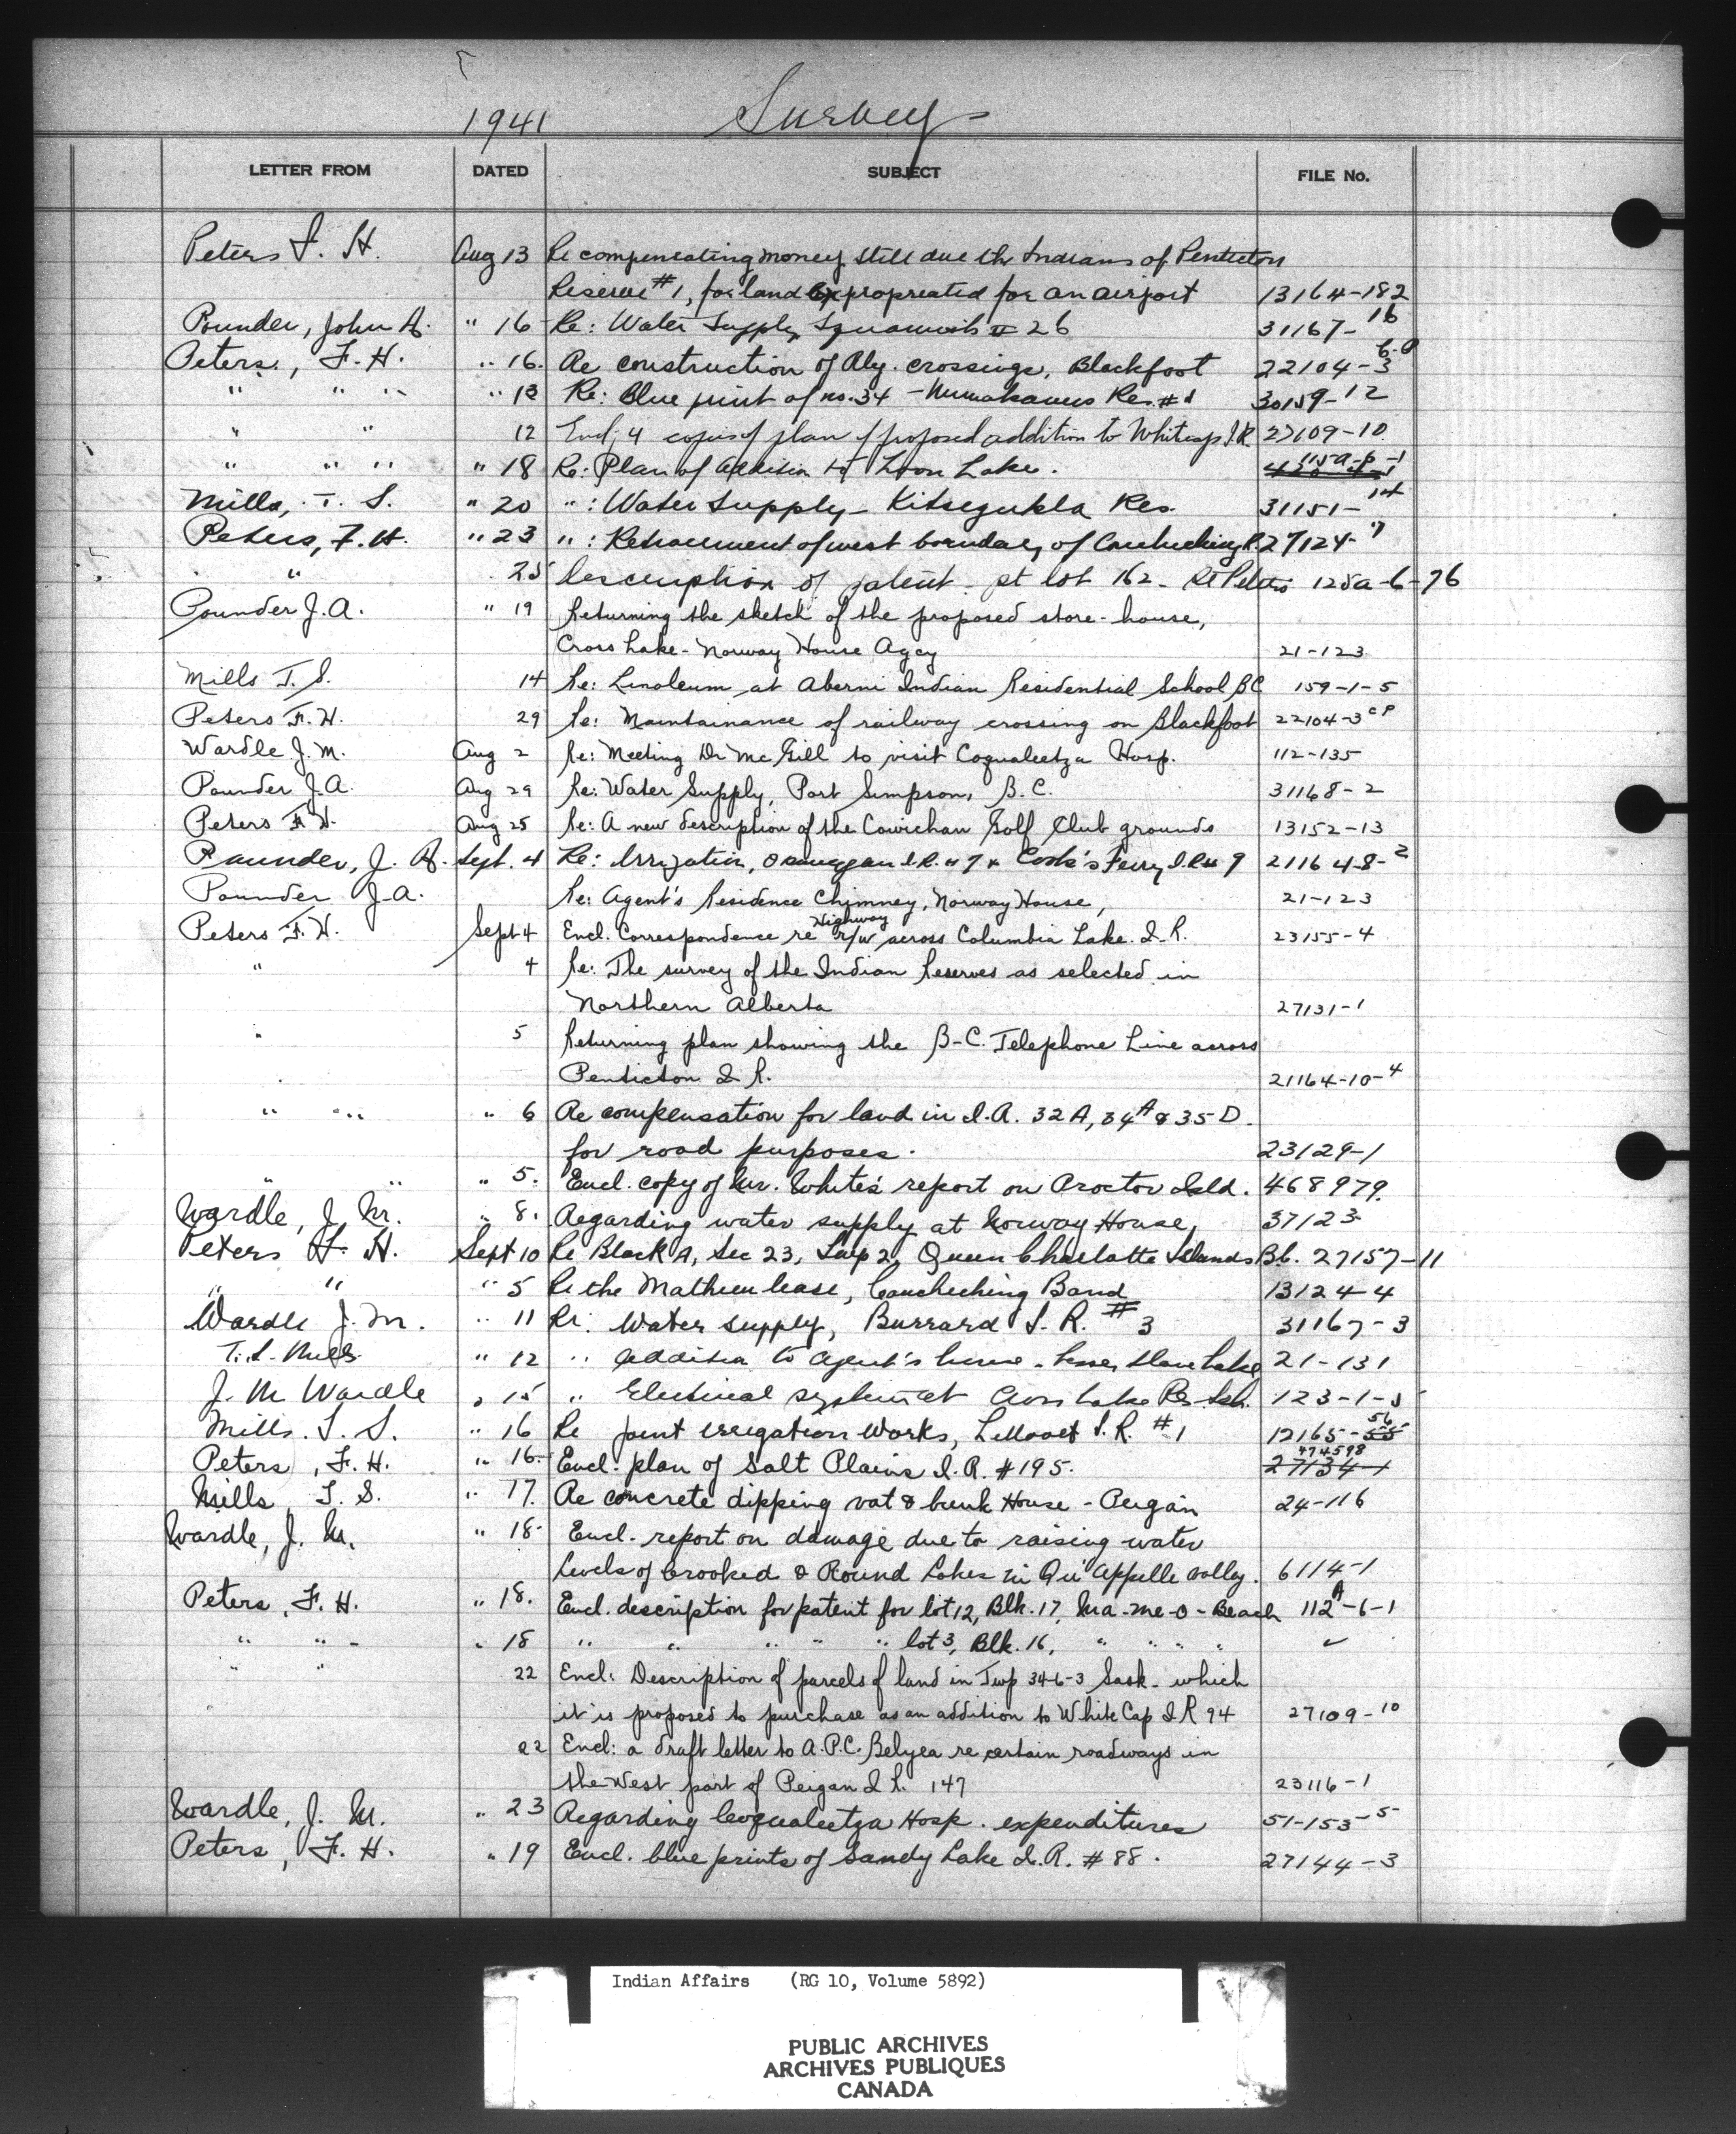 1941 Survey
LETTER FROM DATED SUBJECT FILE No.
Peters F. H. Aug 13 Re compensating money still due the Indians of Penticton
Reserve #1, for land expropreated for an airport 13164-182
Pounder, John A. " 16 Re: Water Supply Squamish 26 31167-16
Peters, F. H. " 16. Re construction of Rly. crossings, Blackfoot 22104-3 C.P
" " " " 13 Re: Blue print of no. 34 - Res. # 30159-12
" " 12 Encl; 4 copies of plan of proposed addition to Whitecaps I.R 27109-10
" " " " 18 Re: Plan of addition to Loon Lake. 115a-6-1
Mills, T. S. " 20 " : Water Supply - Kitsegukla Res. 31151-14
Peters, F. H. " 23 " : Retracement of west boundary of Couchiching R. 27124-7
" 25 Description of patent - pt lot 162 - St Peters 125a-6-76
Pounder J. A. " 19 Returning the sketch of the proposed store-house,
Cross Lake - Norway House Agcy 21-123
Mills T. S. 14 Re: Linoleum at Aberni Indian Residential School BC 159-1-5
Peters F. H. 29 Re: Maintainance of railway crossing on Blackfoot 22104-3 CP
Wardle J. M. Aug 2 Re: Meeting Dr McGill to visit Coqualeetza Hosp. 112-135
Pounder J. A. Aug 29 Re: Water Supply, Port Simpson, B. C. 31168-2
Peters F. H. Aug 25 Re: A new description of the Cowichan Golf Club grounds 13152-13
Paunder, J. A. Sept. 4 Re: Irrigation, I.R. # 7 & Cook's Ferry I.R # 9 211648-2
Pounder J. A. Re: Agent's Residence Chimney, Norway House, 21-123
Peters F. H. Sept 4 Encl. Correspondence re Highway r/w across Columbia Lake. I. R. 23155-4
" 4 Re: The survey of the Indian Reserves as selected in
Northern Alberta 27131-1
" 5 Returning plan showing the B-C. Telephone Line across
Penticton I. R. 21164-10-4
" " " 6 Re compensation for land in I. R. 32A, 34A & 35D.
for road purposes. 23129-1
" " " 5. Encl. copy of Mr. White's report on Proctor Isld. 468979.
Wardle, J. M. " 8. Regarding water supply at Norway House, 37123
Peters F. H. Sept 10 Re Block A, Sec 23, Twp 2, Queen Charlotte Islands B.C. 27157-11
" " " 5 Re the Mathew lease, Coucheching Band 13124-4
Wardle J. M. " 11 Re. Water supply, Burrard I. R. #3 31167-3
T. S. Mills " 12 " Addition to Agent's house - Lesser Slave Lake 21-131
J. M Wardle " 15 " Electrical system at Cross Lake Res. Sch. 123-1-5
Mills. T. S. " 16 Re joint irrigation works, Lillooet I. R. #1 12165-55 56
Peters, F. H. " 16. Encl. plan of Salt Plains I. R. #195. 27134-1 474598
Mills, T. S. " 17. Re concrete dipping vat & bunk House - Peigan 24-116
Wardle, J. M. " 18. Encl. report on damage due to raising water
levels of Crooked & Round Lakes in Qu'Appelle valley. 6114-1
Peters, F. H. " 18. Encl. description for patent for lot 12, Blk. 17, Ma-me-o-Beach 112A-6-1
" " " " 18 " " " " " lot 3, Blk. 16, " " " " ✓
" " 22 Encl: Description of parcels of land in Twp 34-6-3 Sask. which
it is proposed to purchase as an addition to White Cap I. R 94 27109-10
22 Encl: a draft letter to A. P. C. Belyea re certain roadways in
the West part of Peigan I. R. 147 23116-1
Wardle, J. M. " 23 Regarding Coqualeetza Hosp. expenditures 51-153-5
Peters, F. H. " 19 Encl. blue prints of Sandy Lake I. R. #88. 27144-3
Indian Affairs (RG 10, Volume 5892)
PUBLIC ARCHIVES
ARCHIVES PUBLIQUES
CANADA